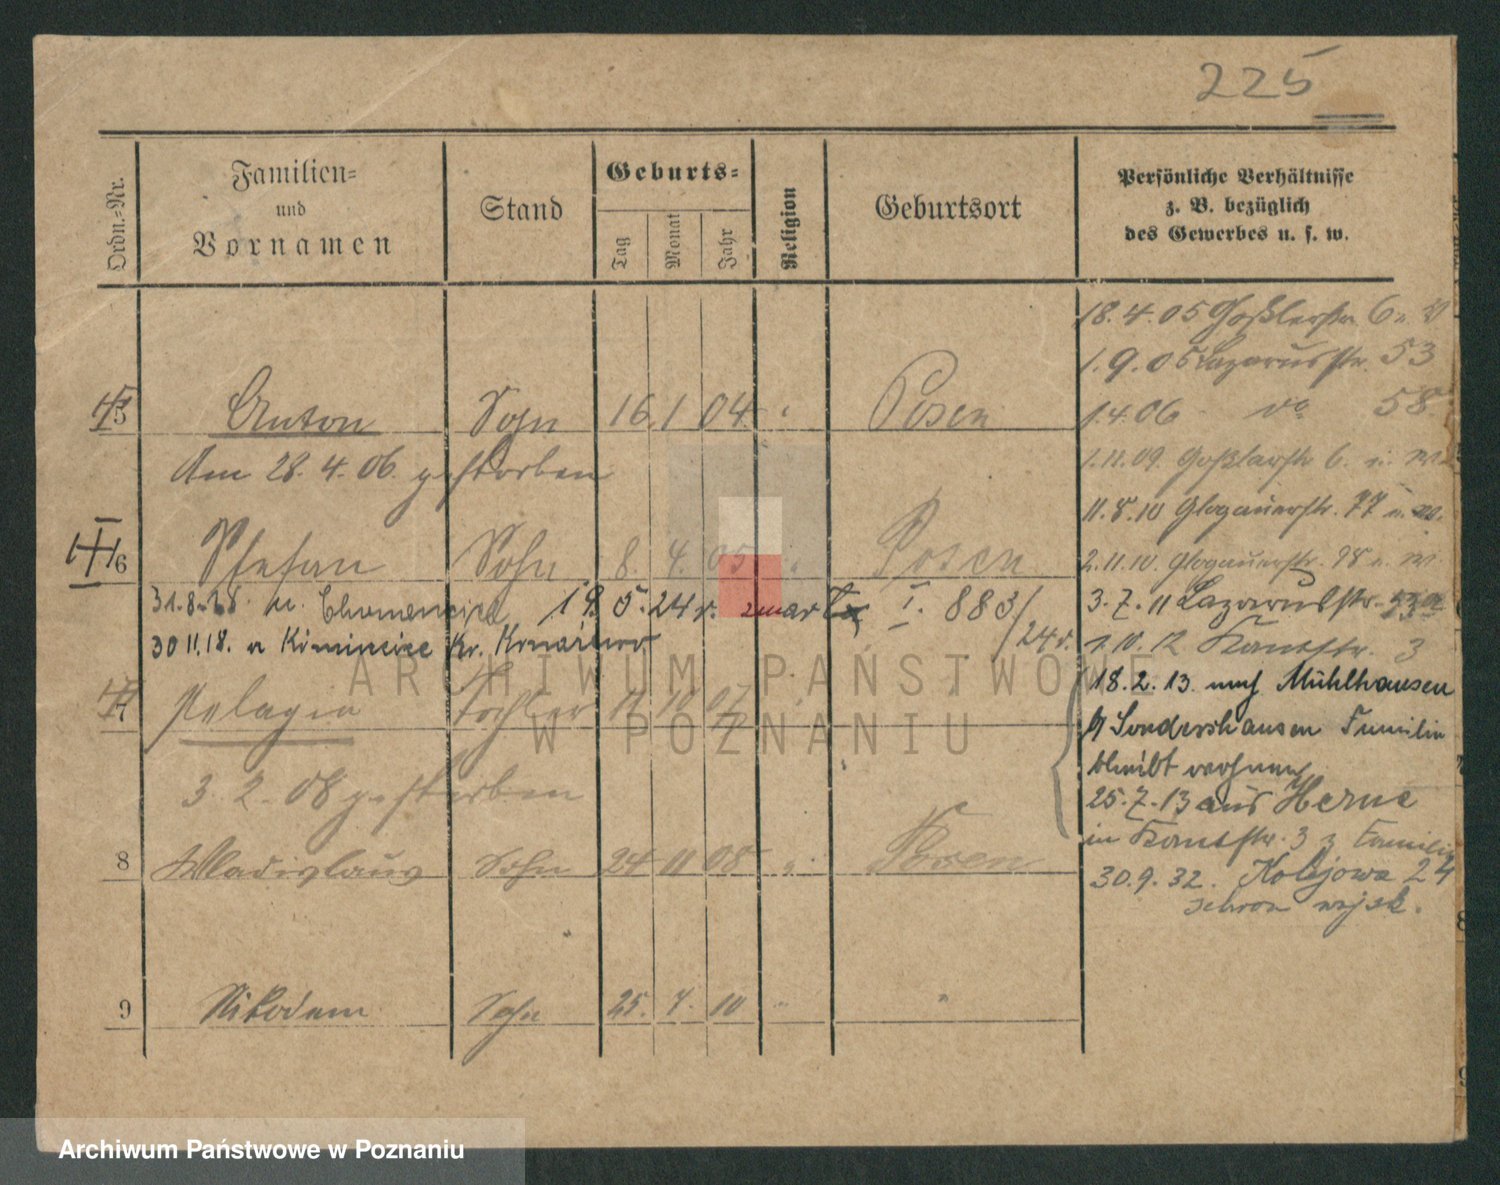 225
Ordn.-Nr.
Familien-
und
Vornamen
Stand
Geburts-
Tag
Monat
Jahr
Religion
Geburtsort
Persönliche Verhältnisse
z. B. bezüglich
des Gewerbes u. s. w.
18.4.05 Goßlerstr. 6
1.9.05 Lazarusstr. 53
5 Anton Sohn 16 1 04 " Posen
1.4.06 do 58
Am 28.4.06. gestorben
1.11.09. Goßlerstr. 6.
11.8.10 Glogauerstr. 77
6 Stefan Sohn 8. 4. 05 " Posen
2.11.10. Glogauerstr. 98
31.8.18 n. 19 5. 24 r. zmarł I. 883/24 r.
3.7.11 Lazarusstr.
30 11.18. a Kr.
1.10.12 Kantstr. 3
7 Pelagia Tochter 11 10 07
18.2.13. nach Mühlhausen
Sondershausen Familie
bleibt wohnen
3. 2. 08 gestorben
25.7.13 aus Herne
in Kantstr. 3 z Familie
8 Wladislaus Sohn 24 11 08 " Posen
30.9.32. Kolejowa 24
schron wojsk.
9 Nikodem Sohn 25. 7. 10 " "
ARCHIWUM PAŃSTWOWE
W POZNANIU
Archiwum Państwowe w Poznaniu